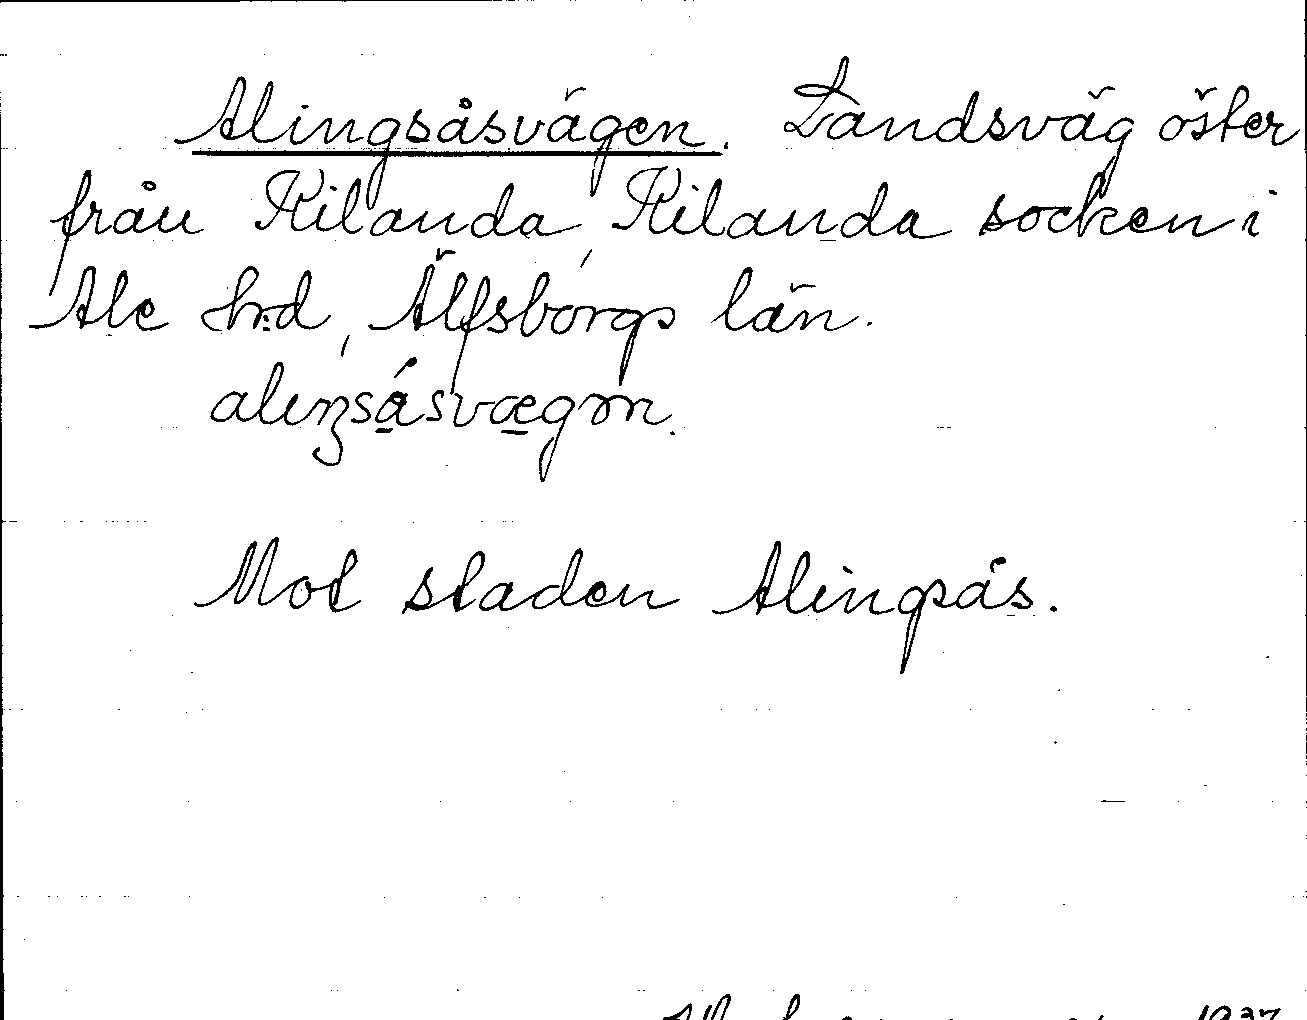 Alingsåsvägen. Landsväg öster
från Kilanda, Kilanda socken i
Ale hrd, Älfsborgs län.
alıŋsåsvægən.
Mot staden Alingsås.
1937